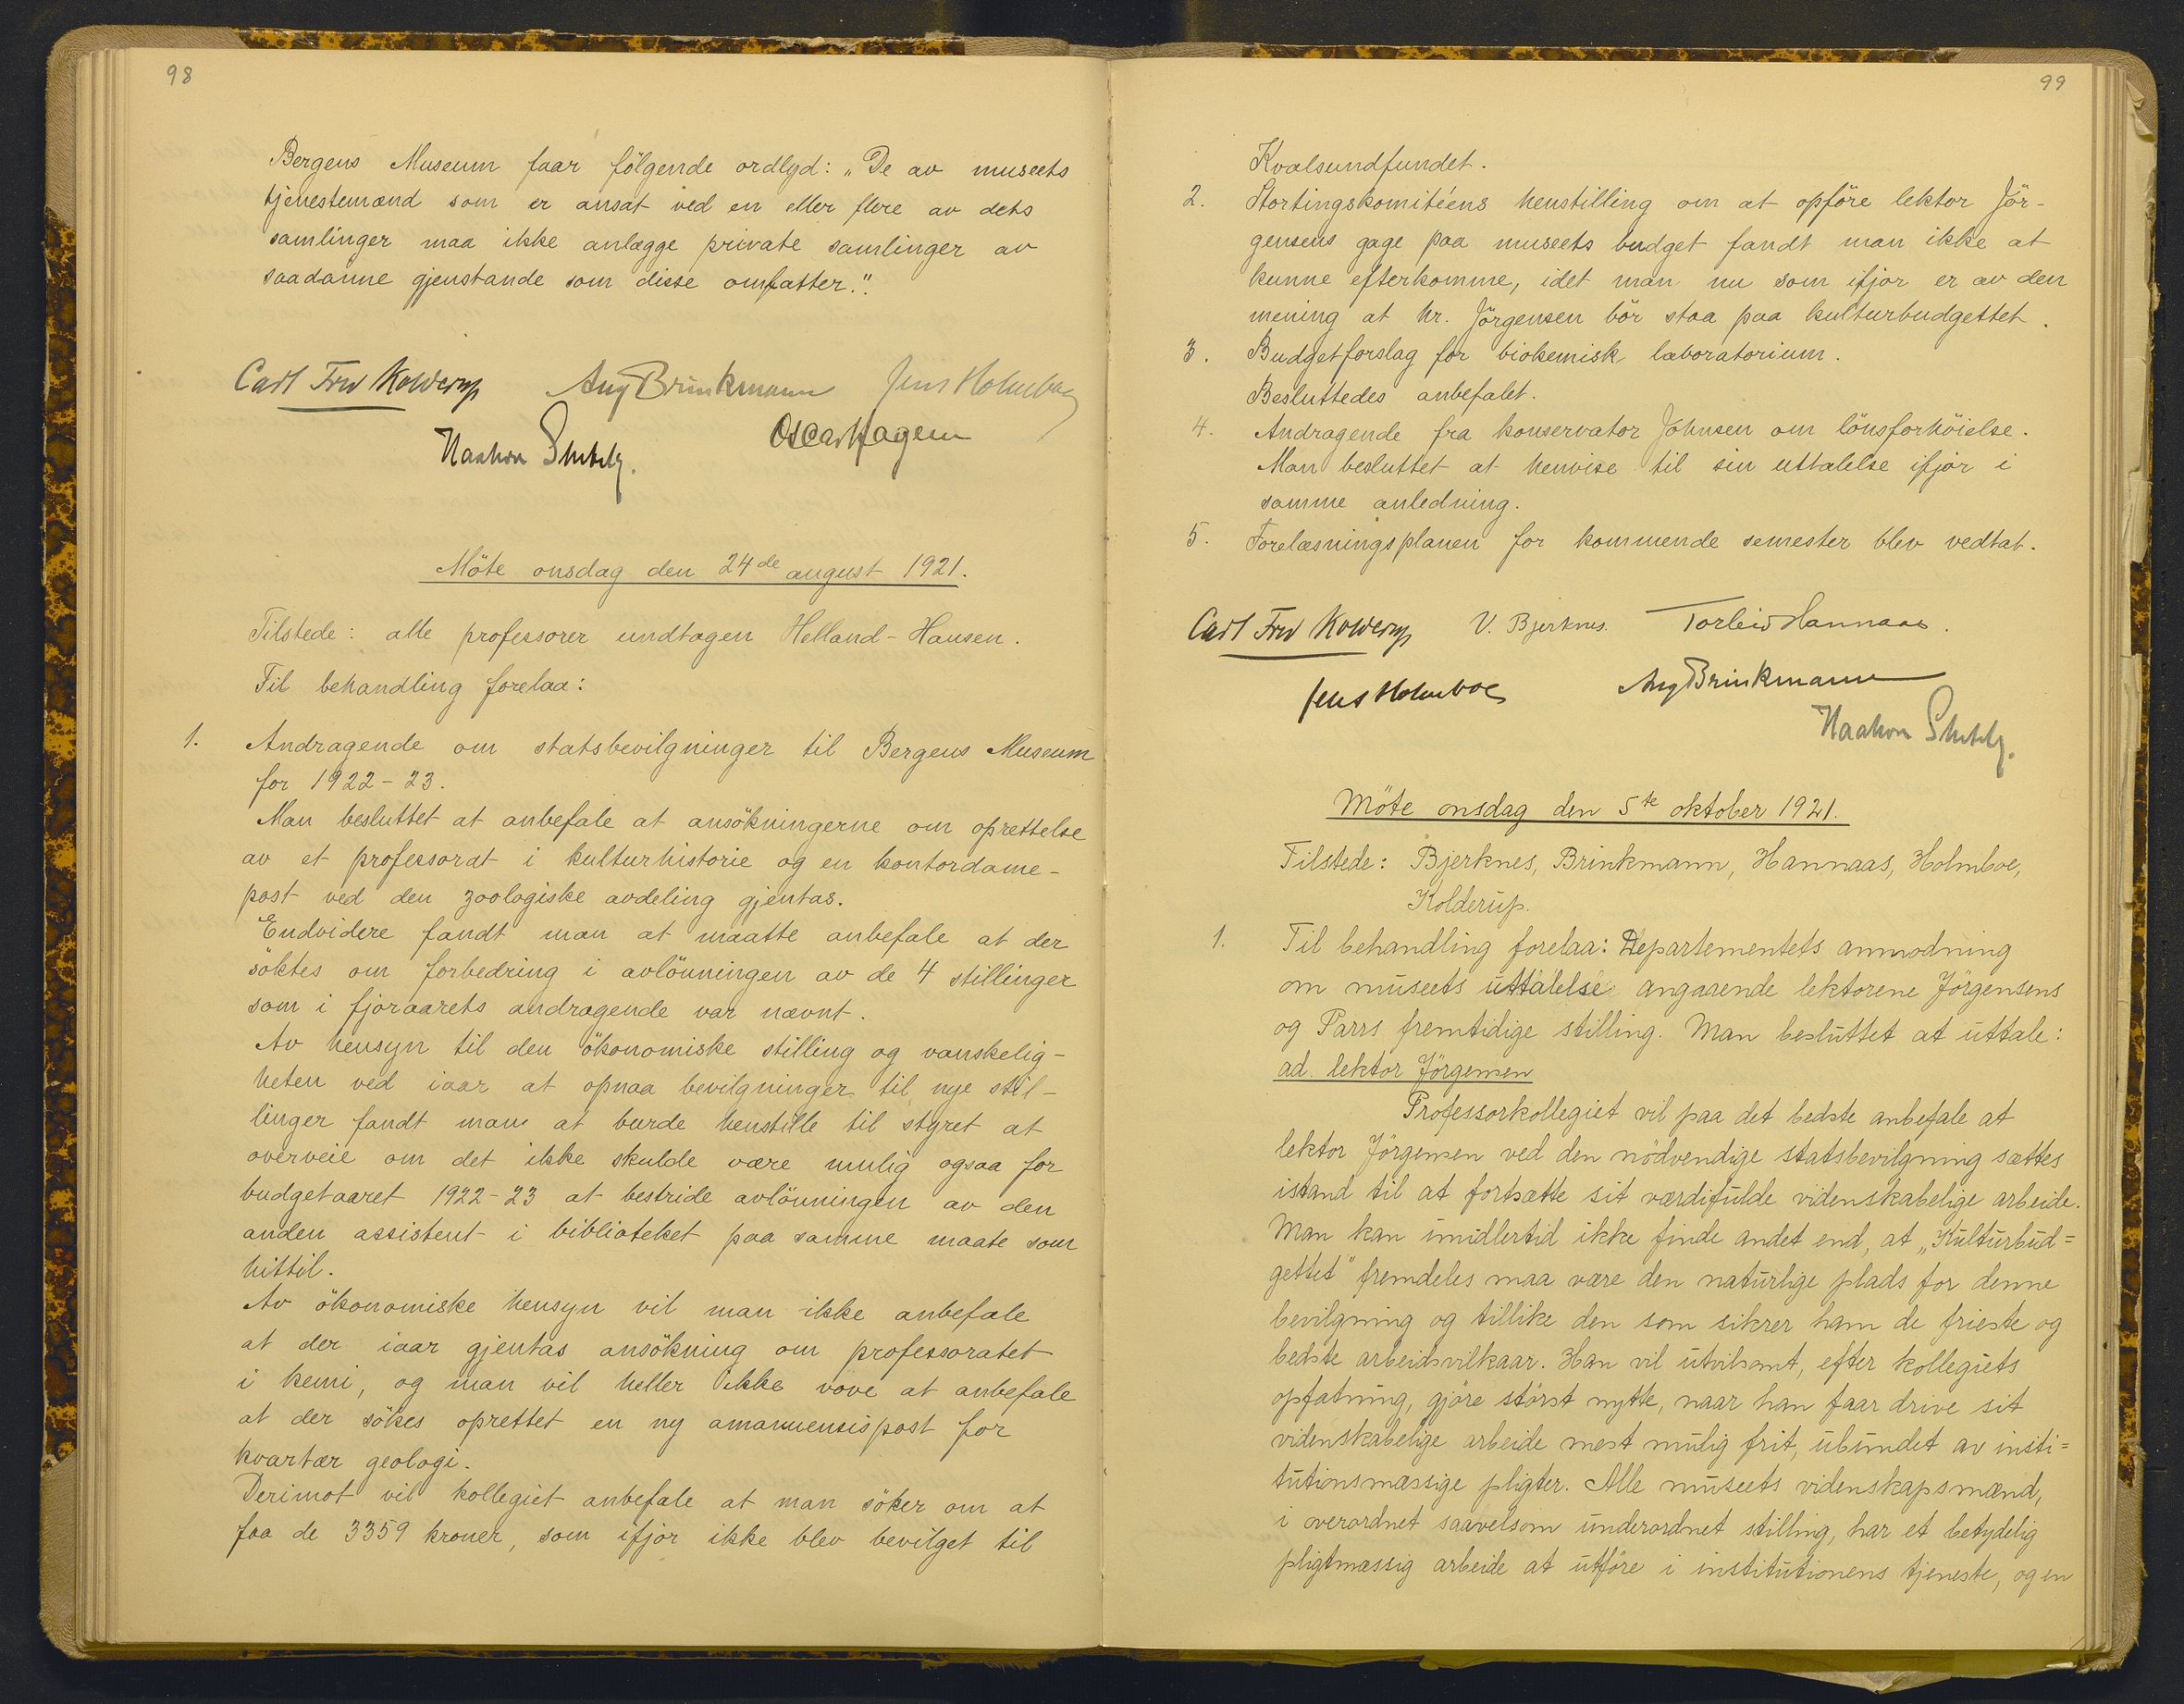 98
Bergens Museum faar følgende ordlyd: „De av museets
tjenestemænd som er ansat ved en eller flere av dets
samlinger maa ikke anlægge private samlinger av
saadanne gjenstande som disse omfatter."
Carl Fred Kolderup Aug Brinkmann Jens Holmboe
Haakon Shetelig. Oscar Hagem
Möte onsdag den 24de august 1921.
Tilstede: alle professorer undtagen Helland-Hansen.
Til behandling forelaa:
1. Andragende om statsbevilgninger til Bergens Museum
for 1922-23.
Man besluttet at anbefale at ansökningerne om oprettelse
av et professorat i kulturhistorie og en kontordame-
post ved den zoologiske avdeling gjentas.
Endvidere fandt man at maatte anbefale at der
söktes om forbedring i avlönningen av de 4 stillinger
som i fjoraarets andragende var nævnt.
Av hensyn til den ökonomiske stilling og vanskelig-
heten ved iaar at opnaa bevilgninger til nye stil-
linger fandt man at burde henstille til styret at
overveie om det ikke skulde være mulig ogsaa for
budgetaaret 1922-23 at bestride avlönningen av den
anden assistent i biblioteket paa samme maate som
hittil.
Av ökonomiske hensyn vil man ikke anbefale
at der iaar gjentas ansökning om professoratet
i kemi, og man vil heller ikke vove at anbefale
at der sökes oprettet en ny amanuensispost for
kvartær geologi.
Derimot vil kollegiet anbefale at man söker om at
faa de 3359 kroner, som ifjor ikke blev bevilget til
99
Kvalsundfundet.
2. Stortingskomitéens henstilling om at opföre lektor Jör-
gensens gage paa museets budget fandt man ikke at
kunne efterkomme, idet man nu som ifjor er av den
mening at hr. Jörgensen bör staa paa kulturbudgettet.
3. Budgetforslag for biokemisk laboratorium.
Besluttedes anbefalet.
4. Andragende fra konservator Johnsen om lönsforhöielse.
Man besluttet at henvise til sin uttalelse ifjor i
samme anledning.
5. Forelæsningsplanen for kommende semester blev vedtat.
Carl Fred Kolderup V. Bjerknes. Torleiv Hannaas.
Jens Holmboe Aug Brinkmann
Haakon Shetelig.
Möte onsdag den 5te oktober 1921.
Tilstede: Bjerknes, Brinkmann, Hannaas, Holmboe,
Kolderup.
1. Til behandling forelaa: Departementets anmodning
om museets uttalelse angaaende lektorene Jörgensens
og Parrs fremtidige stilling. Man besluttet at uttale:
ad. lektor Jörgensen
Professorkollegiet vil paa det bedste anbefale at
lektor Jörgensen ved den nödvendige statsbevilgning sættes
istand til at fortsætte sit værdifulde videnskabelige arbeide.
Man kan imidlertid ikke finde andet end, at „Kulturbud=
gettet" fremdeles maa være den naturlige plads for denne
bevilgning og tillike den som sikrer ham de frieste og
bedste arbeidsvilkaar. Han vil utvilsomt, efter kollegiets
opfatning, gjöre störst nytte, naar han faar drive sit
videnskabelige arbeide mest mulig frit, ubundet av insti=
tutionsmæssige pligter. Alle museets videnskapsmænd,
i overordnet saavelsom underordnet stilling, har et betydelig
pligtmæssig arbeide at utföre i institutionens tjeneste, og en